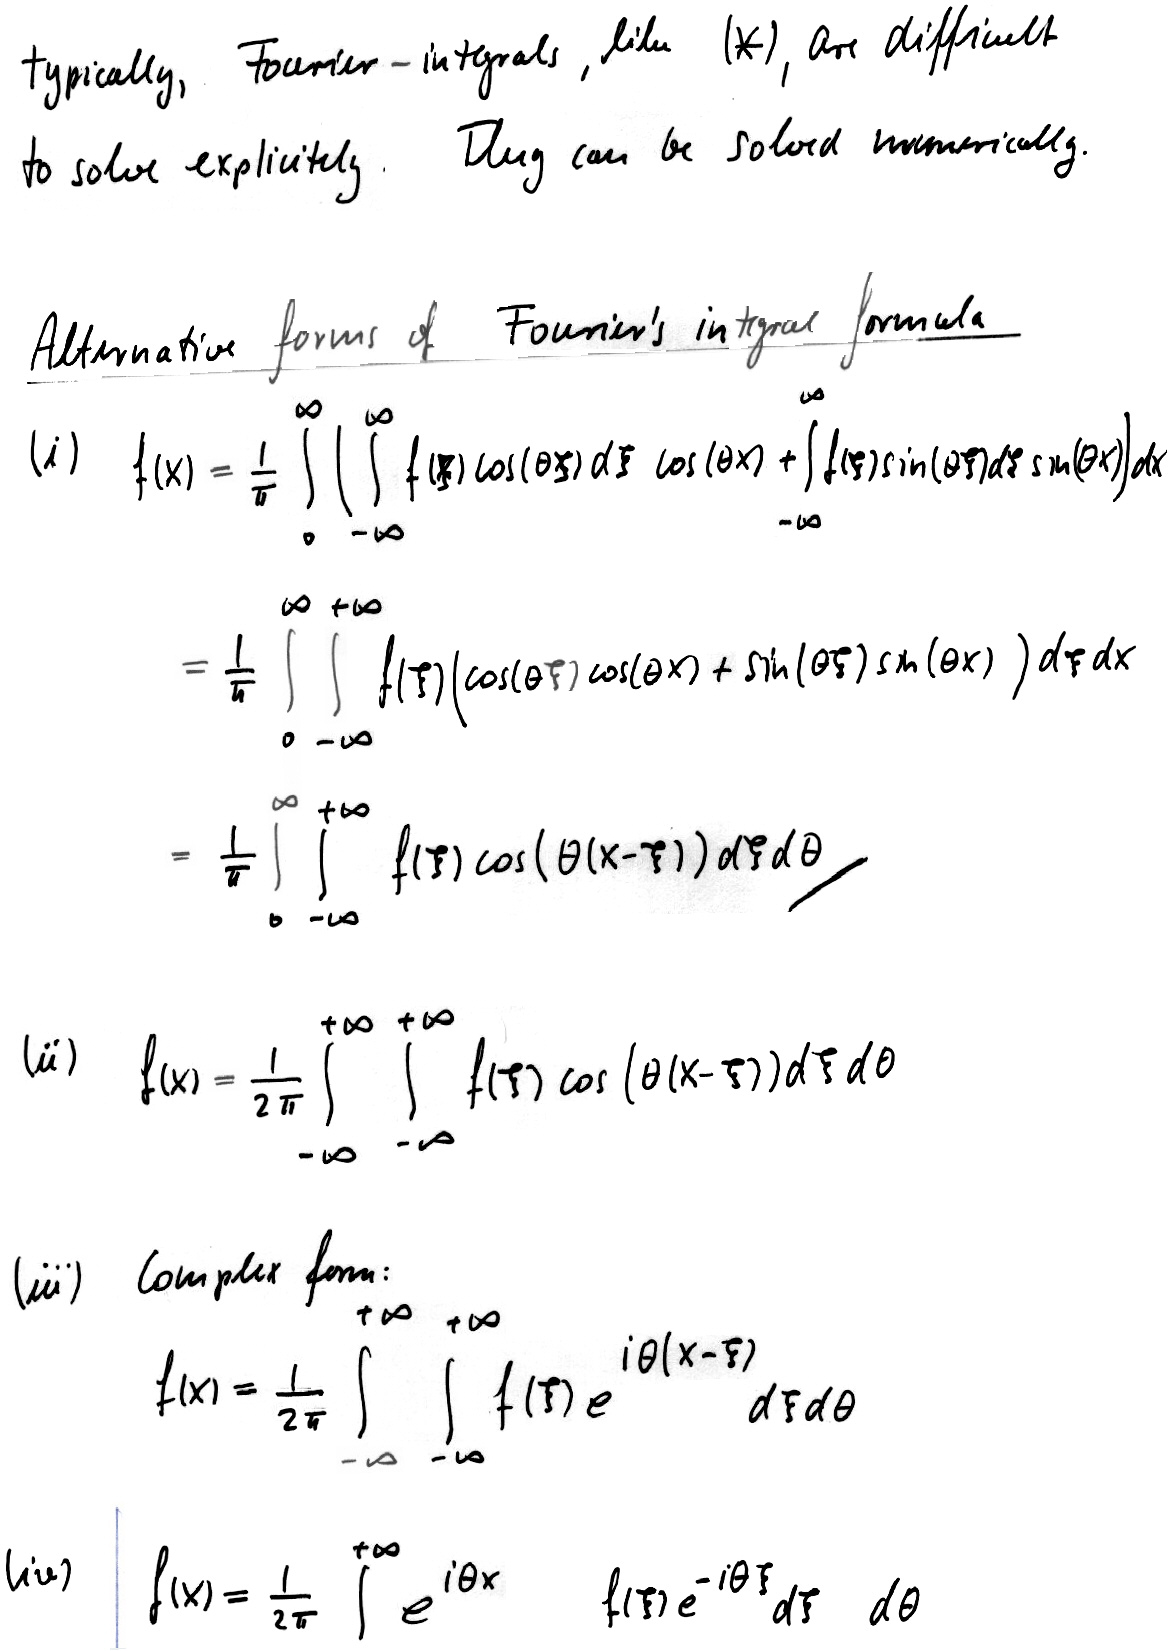 typically, Fourier-integrals, like (*), are difficult
to solve explicitely. They can be solved numerically.
Alternative forms of Fourier's integral formula
(i) f(x) = 1/π ∫_0^∞ ( ∫_{-∞}^∞ f(ξ) cos(θξ) dξ cos(θx) + ∫_{-∞}^∞ f(ξ) sin(θξ) dξ sin(θx) ) dx
= 1/π ∫_0^∞ ∫_{-∞}^{+∞} f(ξ) ( cos(θξ) cos(θx) + sin(θξ) sin(θx) ) dξ dx
= 1/π ∫_0^∞ ∫_{-∞}^{+∞} f(ξ) cos(θ(x-ξ)) dξ dθ
(ii) f(x) = 1/2π ∫_{-∞}^{+∞} ∫_{-∞}^{+∞} f(ξ) cos(θ(x-ξ)) dξ dθ
(iii) Complex form:
f(x) = 1/2π ∫_{-∞}^{+∞} ∫_{-∞}^{+∞} f(ξ) e^{iθ(x-ξ)} dξ dθ
(iv) f(x) = 1/2π ∫^{+∞} e^{iθx} f(ξ) e^{-iθξ} dξ dθ